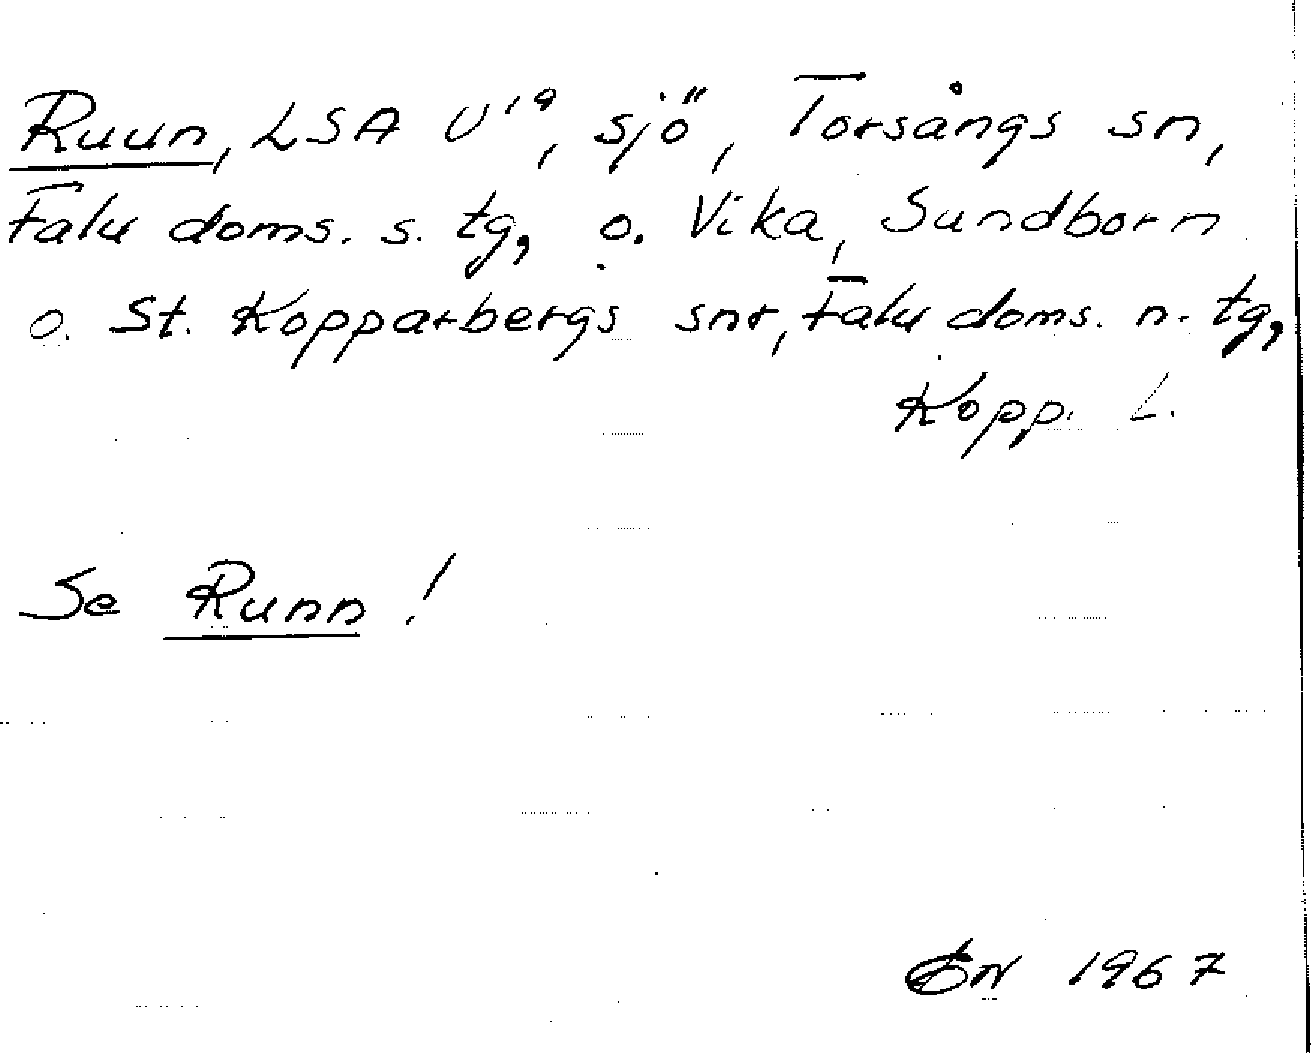 Ruun, LSA U19, sjö, Torsångs sn,
Falu doms. s. tg, o. Vika, Sundborn
o. St. Kopparbergs snr, Falu doms. n. tg,
Kopp. L.
Se Runn!
1967